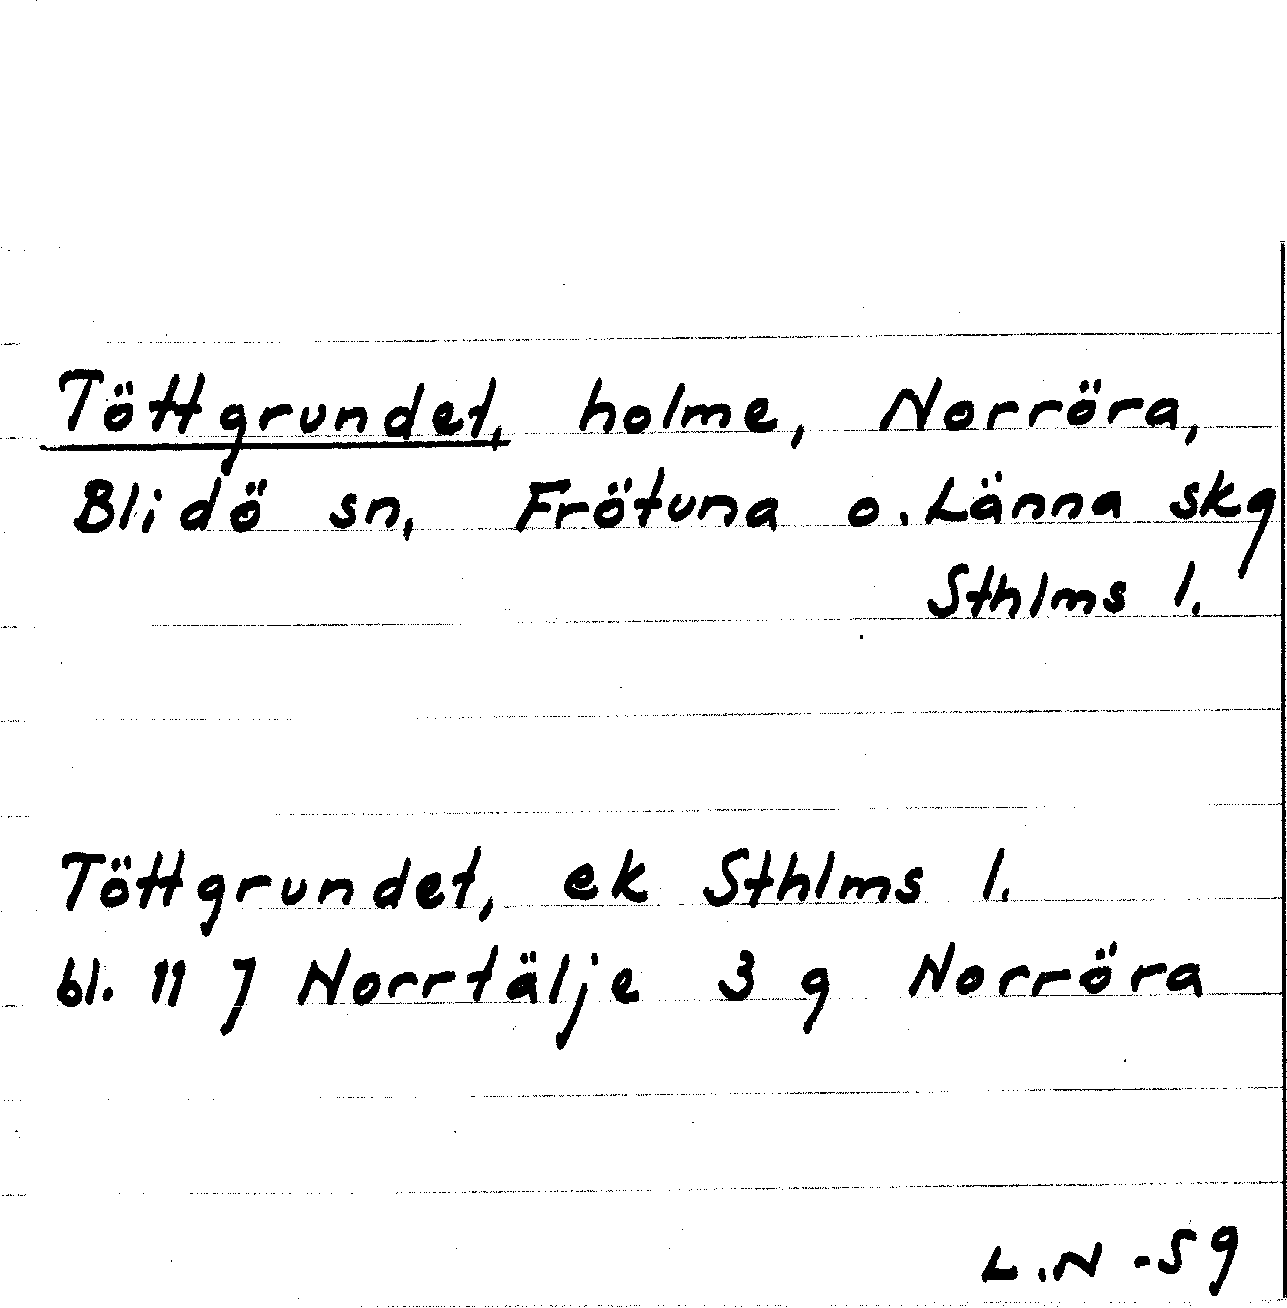 Töttgrundet, holme, Norröra,
Blidö sn, Frötuna o. Länna skg
Sthlms l.
Töttgrundet, ek Sthlms l.
bl. 11 J Norrtälje 3 g Norröra
L.N -59